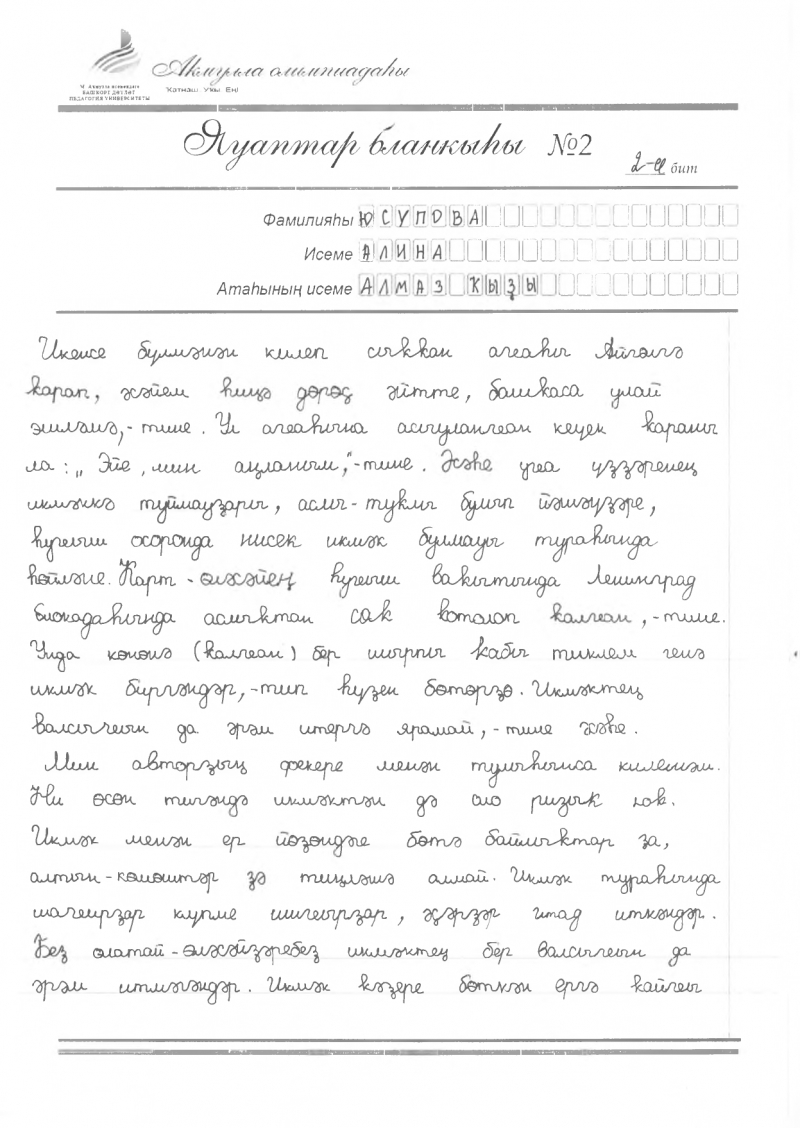 М. Акмулла исемендәге
БАШҠОРТ ДӘҮЛӘТ
ПЕДАГОГИЯ УНИВЕРСИТЕТЫ
Акмулла олимпиадаһы
Ҡатнаш Уҡы Еңе
Яуаптар бланкыһы №2
2-се бит
Фамилияһы ЮСУПОВА
Исеме АЛИНА
Атаһының исеме АЛМАЗ ҠЫҘЫ
Икенсе бүлмәнән килеп сыҡҡан ағаһы Айгөлгә
ҡарап, әсәйем һиңә дөрөҫ әйтте, башҡаса улай
эшләмә,- тине. Ул ағаһына асыуланған кеүек ҡараны
ла: „Эйе, мин аңланым,"-тине. Әсәһе уға үҙҙәренең
икмәккә туймауҙары, аслы-туҡлы булып йәшәүҙәре,
һуғыш осоронда нисек икмәк булмауы тураһында
һөйләне. Ҡарт-өләсәйең һуғыш ваҡытында Ленинград
блокадаһында аслыҡтан саҡ ҡотолоп ҡалған,-тине.
Унда көнөнә (ҡалған) бер шырпы ҡабы тиклем генә
икмәк биргәндәр,-тип һүҙен бөтөрҙө. Икмәктең
валсығын да әрәм итергә ярамай,-тине әсәһе.
Мин авторҙың фекере менән тулыһынса килешәм.
Ни өсөн тигәндә икмәктән дә оло ризыҡ юҡ.
Икмәк менән ер йөҙөндәге бөтә байлыҡтар ҙа,
алтын-көмөштәр ҙә тиңләшә алмай. Икмәк тураһында
шағирҙар күпме шиғырҙар, әҫәрҙәр ижад иткәндәр.
Беҙ олатай-өләсәйҙәребеҙ икмәктең бер валсығын да
әрәм итмәгәндәр. Икмәк кәҙере бөткән ергә ҡайғы